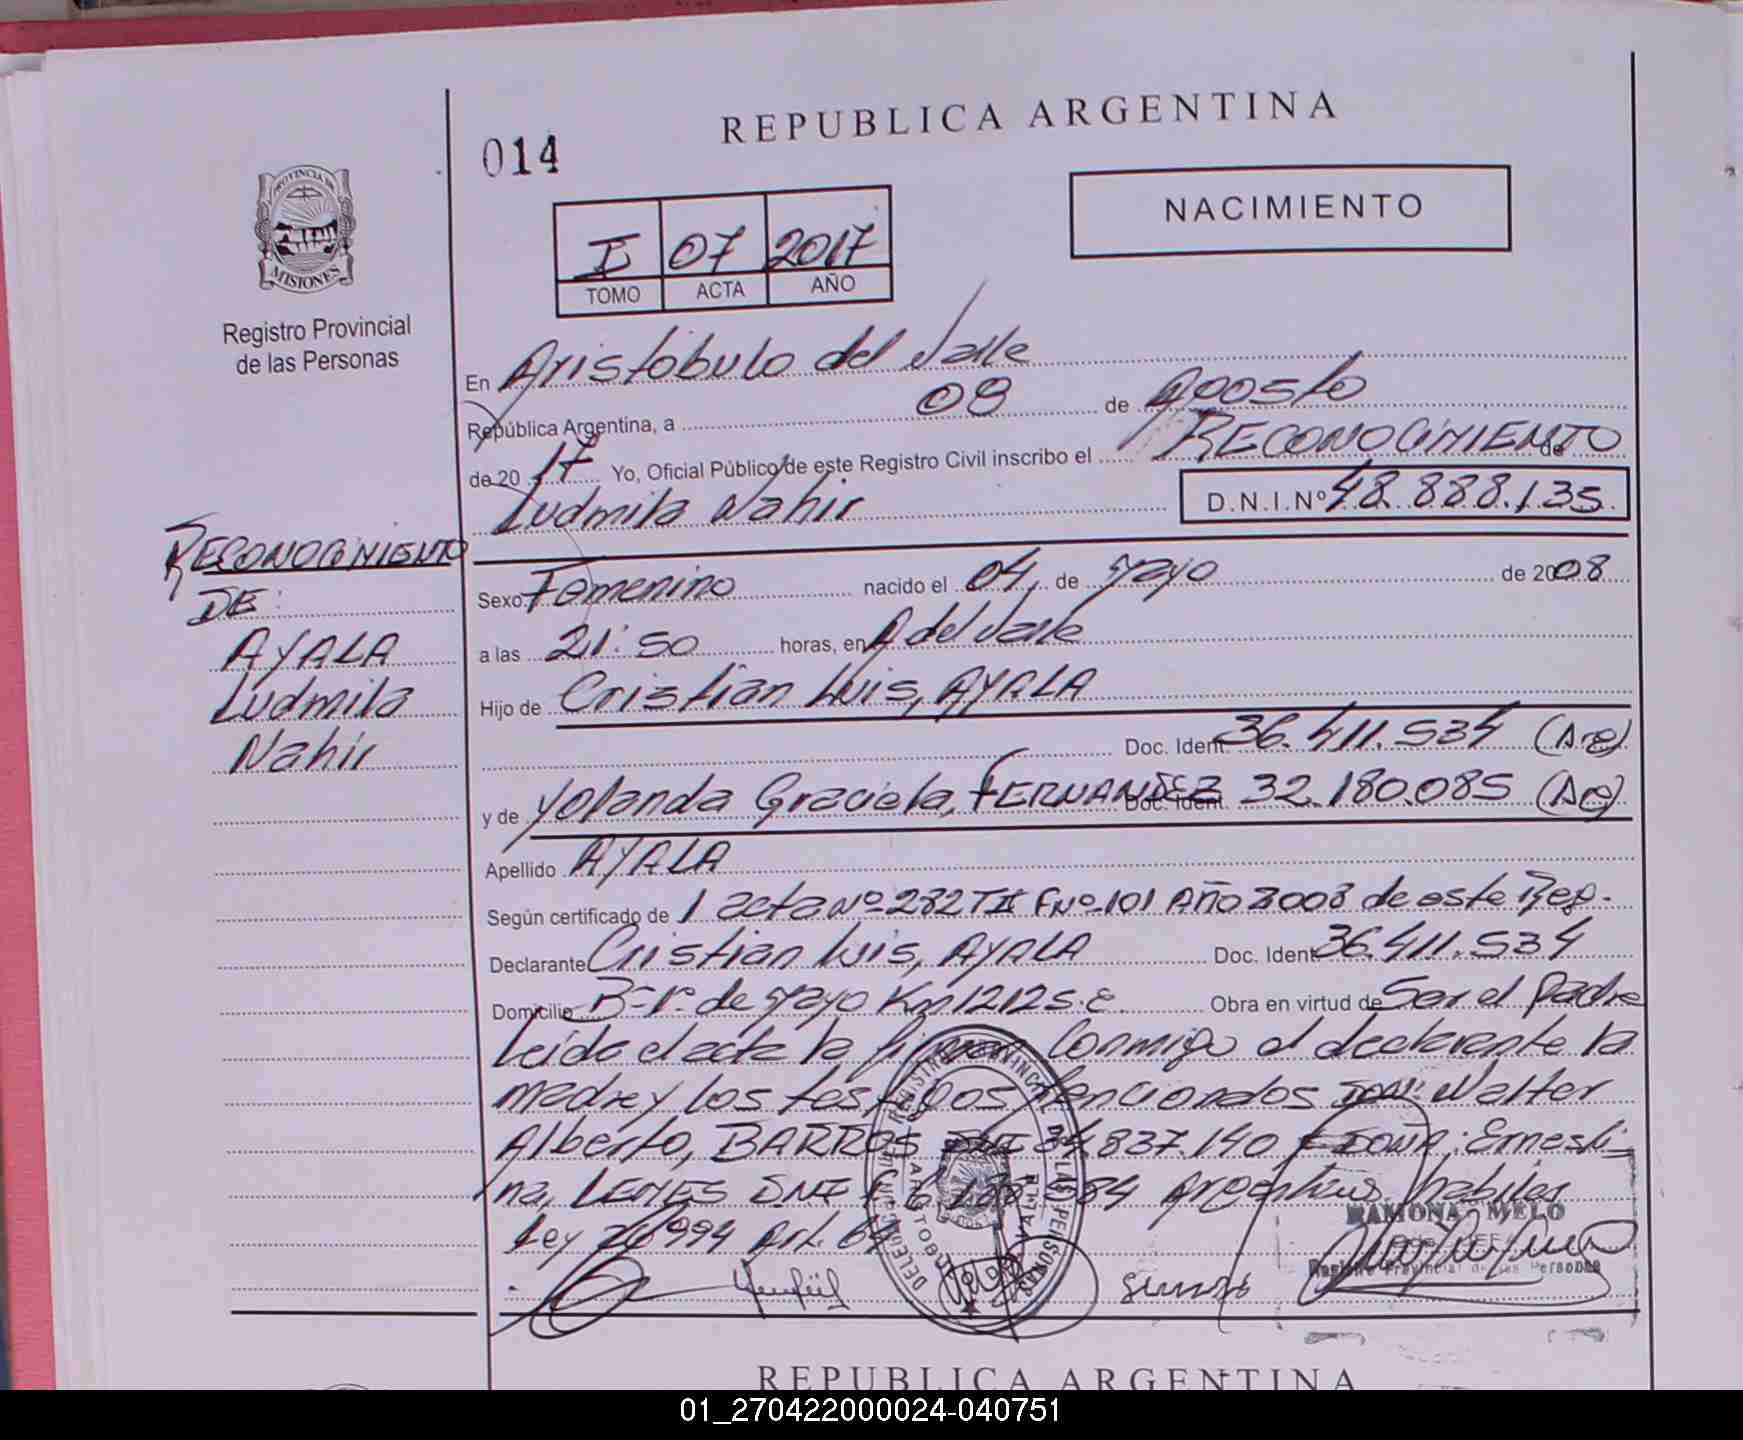 REPUBLICA ARGENTINA
014
NACIMIENTO
I 07 2017
TOMO ACTA AÑO
PROVINCIA DE
MISIONES
Registro Provincial
de las Personas
En Aristóbulo del Valle
República Argentina, a 08 de Agosto
de 2017 Yo, Oficial Público de este Registro Civil inscribo el RECONOCIMIENTO de
Ludmila Nahir D.N.I.Nº 48.888.135
RECONOCIMIENTO
DE:
AYALA
Ludmila
Nahir
Sexo Femenino nacido el 04 de Mayo de 2008
a las 21:50 horas, en A del Valle
Hijo de Cristian Luis, AYALA
Doc. Ident 36.411.534 (Arg)
y de Yolanda Graciela, FERNANDEZ Doc. Ident. 32.180.085 (Arg)
Apellido AYALA
Según certificado de / acta Nº 282 TII FNº 101 Año 2008 de este Reg.
Declarante Cristian Luis, AYALA Doc. Ident 36.411.534
Domicilio Bº 1º de Mayo Km 1212 S.E. Obra en virtud de Ser el Padre
Leída el acta la firman Conmigo el declarante la
madre y los testigos mencionados DON: Walter
Alberto, BARROS DNI 34.837.140 y DOÑA: Ernesti-
na, LEMES DNI F 6 584 Argentinos, hábiles
Ley 26994 Art. 64
RAMONA MELO
Registro Provincial de las Personas
REPUBLICA ARGENTINA
01_270422000024-040751